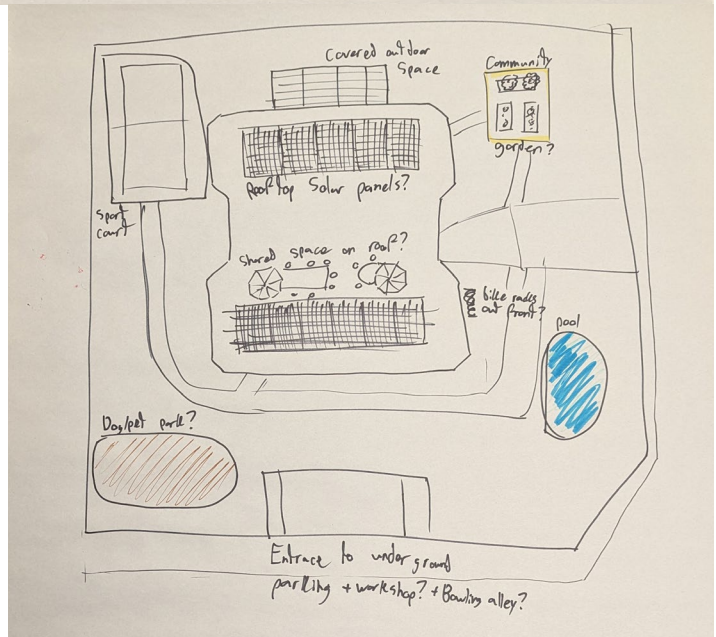 Covered outdoor
Space
Community
garden?
Rooftop Solar panels?
Sport
court
Shared space on roof?
bike racks
out front?
pool
Dog/pet park?
Entrace to underground
parking + workshop? + Bowling alley?